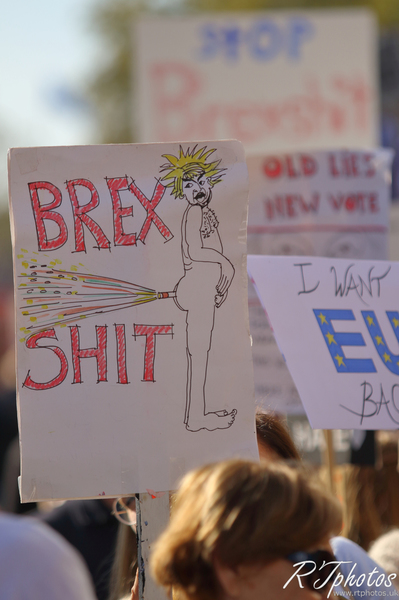 STOP
Brexshit
OLD LIES
NEW VOTE
BREX
SHIT
I WANT
EU
BAC
RTphotos
www.rtphotos.uk